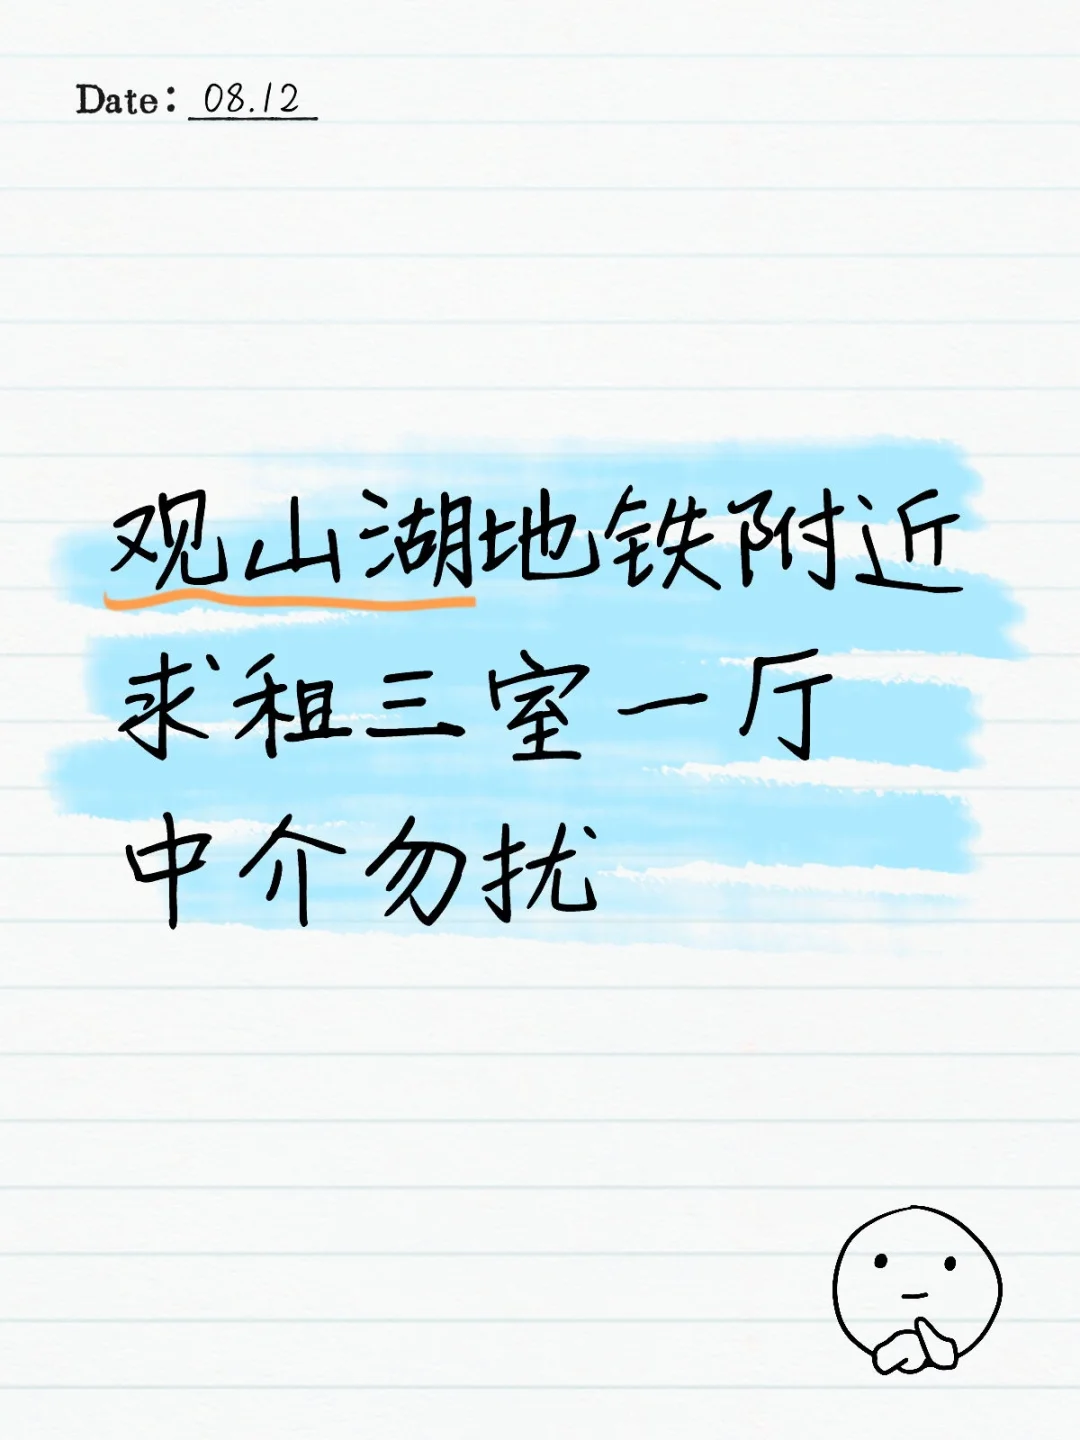 Date: 08.12
观山湖地铁附近
求租三室一厅
中介勿扰